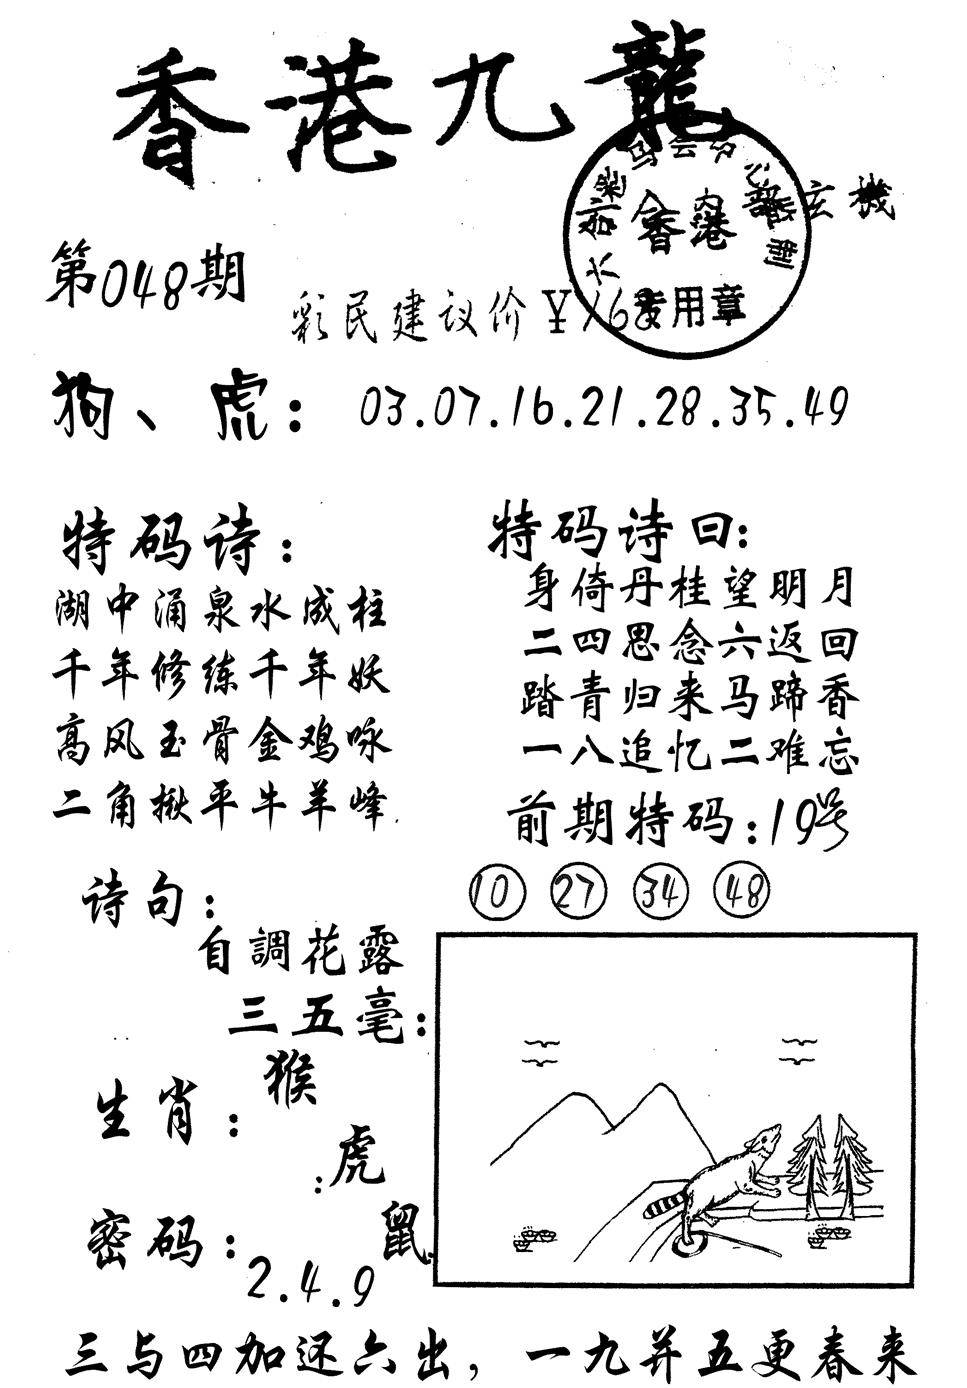 香港九龍
内部玄機
香港
专用章
第048期
彩民建议价￥168
狗、虎：03.07.16.21.28.35.49
特码诗：
湖中涌泉水成柱
千年修练千年妖
高风玉骨金鸡咏
二角揪平牛羊峰
特码诗曰：
身倚丹桂望明月
二四思念六返回
踏青归来马蹄香
一八追忆二难忘
前期特码：19号
10 27 34 48
诗句：
自調花露
三五毫：
生肖：猴
虎
鼠
密码：
2.4.9
三与四加还六出，一九并五更春来